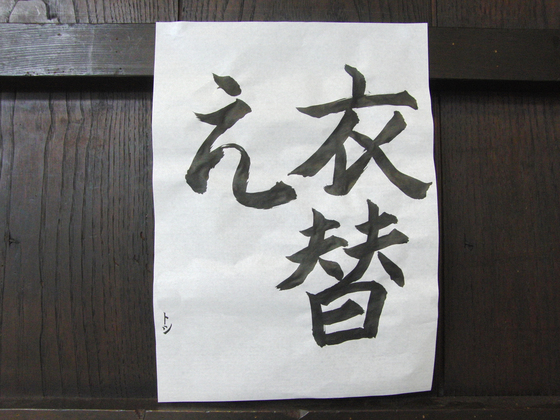 衣替
え
トシ